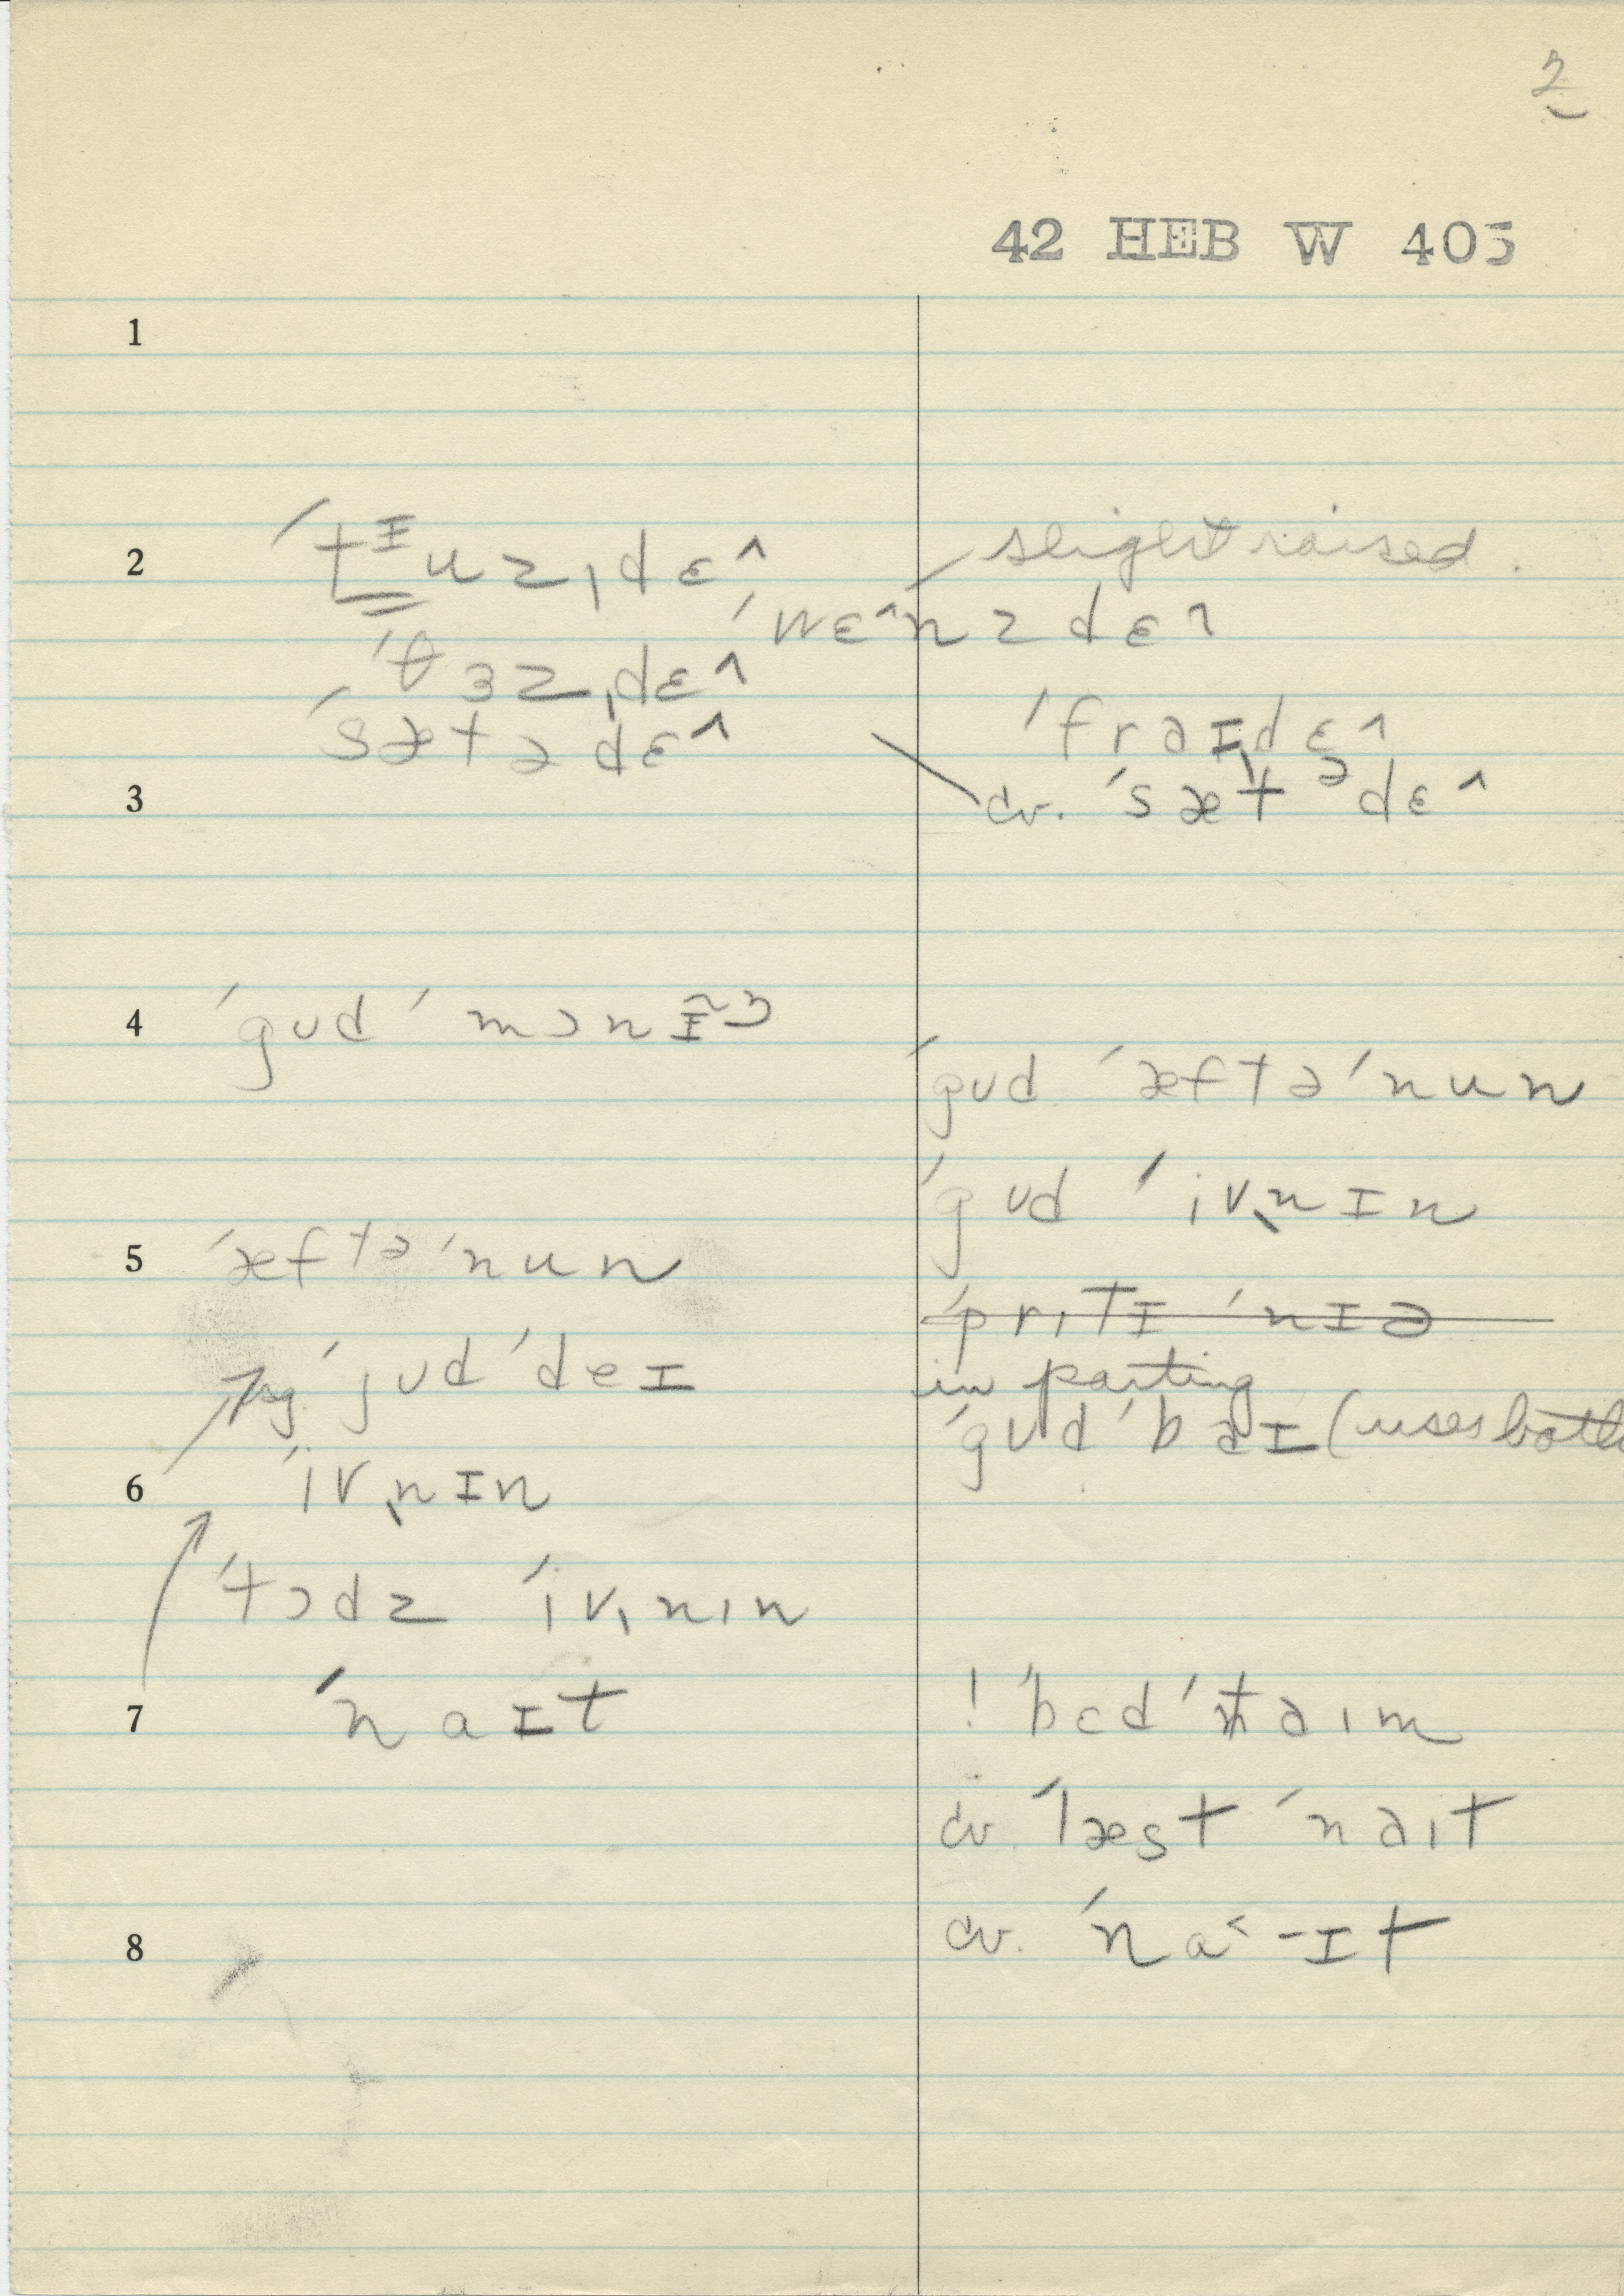 2
42 HEB W 405
1
2 ˈtᶦuzˌdɛ^ slight raised.
ˈwɛ^nzdɛ^
ˈθɜzˌdɛ^
ˈsætədɛ^ ˈfrəɪˌdɛ^
3 cv. ˈsætᵊdɛ^
4 ˈgud ˈmɔnɪ̃
ˈgud ˈæftəˈnun
ˈgud ˈivn̩ɪn
5 ˈæftəˈnun
ˈprɪtɪ ˈnɪə
ˈgud ˈdeɪ in parting
ˈgud ˈbaɪ (uses both
6 ˈivn̩ɪn
ˈtɔdz ˈivˌnɪn
7 ˈnaɪt ! ˈbɛd ˈtəɪm
cv. ˈlæst ˈnəɪt
8 cv. ˈna˂-ɪt